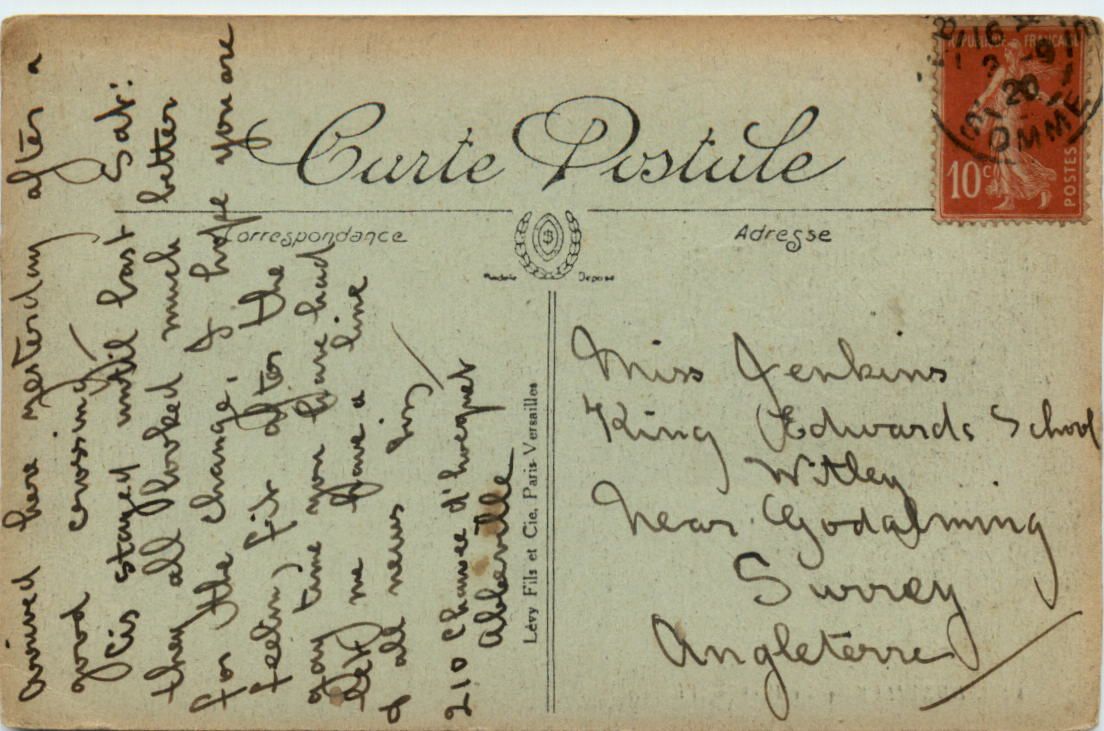 Carte Postale
Correspondance
Adresse
REPUBLIQUE FRANCAISE
10c
POSTES
OMME
20
Arrived here yesterday after a
good crossing
Cis stayed until last Sat:
they all looked much better
for the change. I hope you are
feeling fit after the
gay time you have had
let me have a line
of all news
210 Chaussee d'hocquet
Abbeville
Lévy Fils et Cie, Paris-Versailles
Miss Jenkins
King Edwards School
Witley
Near Godalming
Surrey
Angleterre